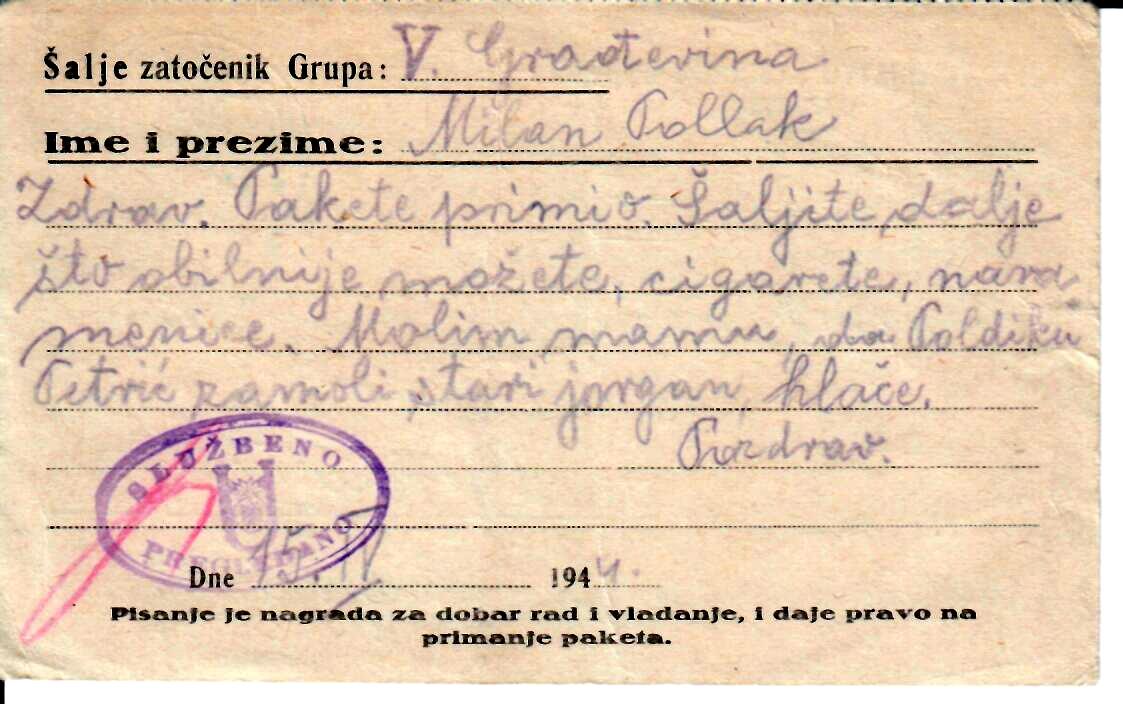 Šalje zatočenik Grupa: V. Građevina
Ime i prezime: Milan Pollak
Zdrav. Pakete primio. Šaljite dalje
što obilnije možete, cigarete, nara
menice. Molim mamu, da Poldiku
Petrić zamoli stari jorgan, hlače.
Pozdrav.
SLUŽBENO
U
PREGLEDANO
Dne 15. II 1944.
Pisanje je nagrada za dobar rad i vladanje, i daje pravo na
primanje paketa.